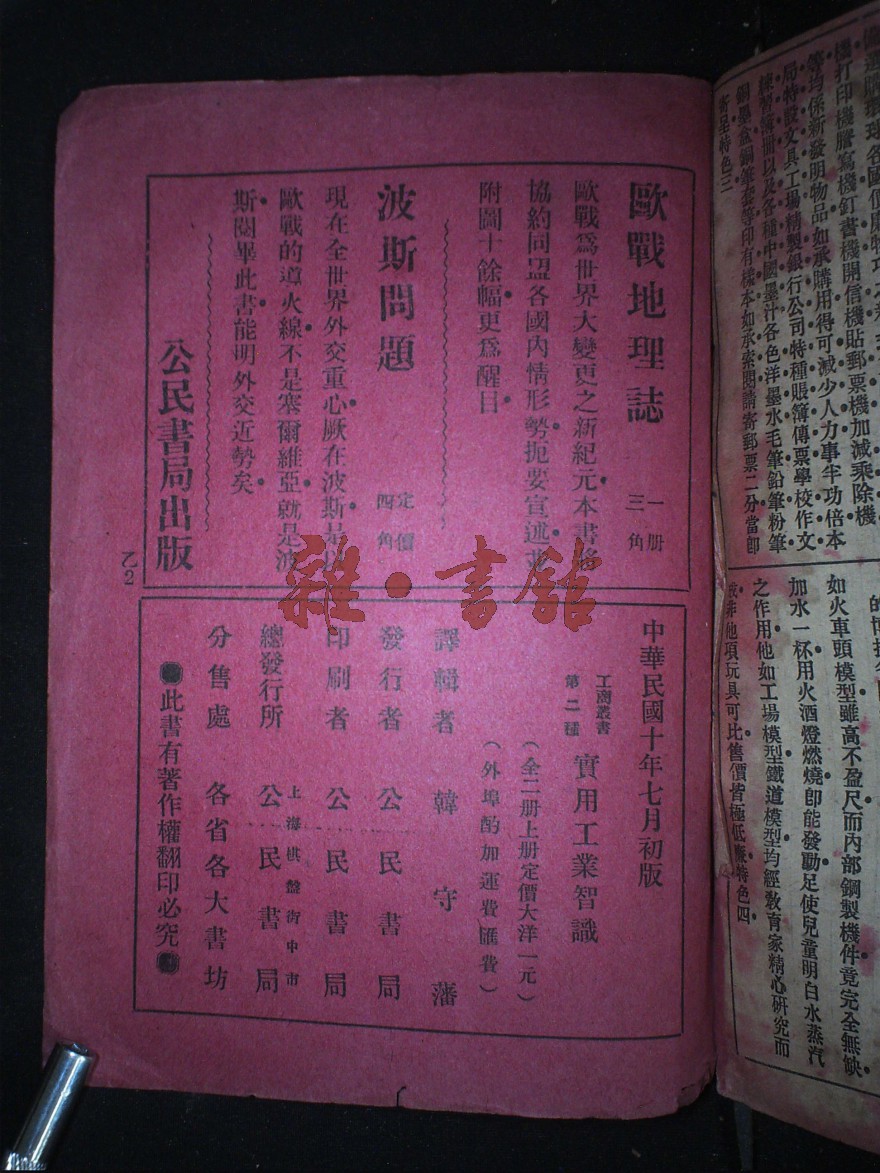 歐戰地理誌
一册
三角
歐戰爲世界大變更之新紀元本書將
協約同盟各國內情形勢扼要宣述並
附圖十餘幅更爲醒目
波斯問題
定價
四角
現在全世界外交重心厥在波斯是以
歐戰的導火線不是塞爾維亞就是波
斯閱畢此書能明外交近勢矣
公民書局出版
乙2
中華民國十年七月初版
工商叢書
第二種
實用工業智識
(全二册上册定價大洋一元)
(外埠酌加運費匯費)
譯輯者 韓守藩
發行者 公民書局
印刷者 公民書局
總發行所 上海棋盤街中市 公民書局
分售處 各省各大書坊
●此書有著作權翻印必究●
雜·書館
機打印機謄寫機釘書機開信機貼郵票機加減乘除機
等均係新發明物品如承購用得可減少人力事半功倍本
局特設文具工場精製銀行公司特種賬簿傳票學校作文
練習簿册以及各種中國墨汁各色洋墨水毛筆鉛筆粉筆
銅墨盒銅筆套等印有樣本如承索閱請寄郵票二分當卽
寄呈特色三
如火車頭模型雖高不盈尺而內部鋼製機件竟完全無缺
加水一杯用火酒燈燃燒卽能發動足使兒童明白水蒸汽
之作用他如工場模型鐵道模型均經教育家精心研究而
成非他項玩具可比售價皆極低廉特色四